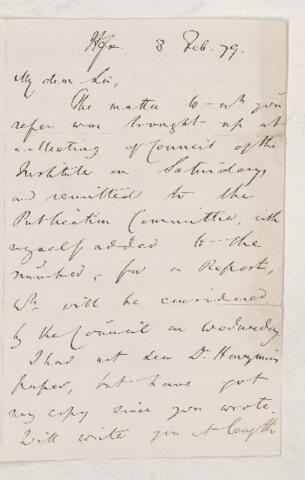 Hfx. 8 Feb. 79.
My dear Sir,
The matter to wh. you
refer was brought up at
a Meeting of Council of the
Institute on Saturday
and remitted to the
Publication Committee, with
myself added to the
number, for a Report,
wh. will be considered
by the Council on Wednesday.
I had not seen Dr. Honeyman's
paper, but have got
my copy since you wrote.
Will write you at length